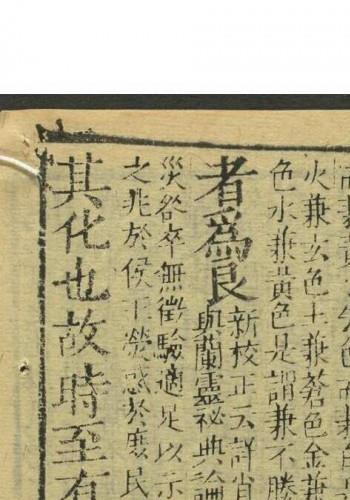 火兼玄色土兼蒼色金兼
色水兼黃色是謂兼不勝
者爲良
新校正云詳肖
與蘭靈祕典論
災咎卒無徵驗適足以示
之兆於侯王熒惑於庶民
其化也故時至有